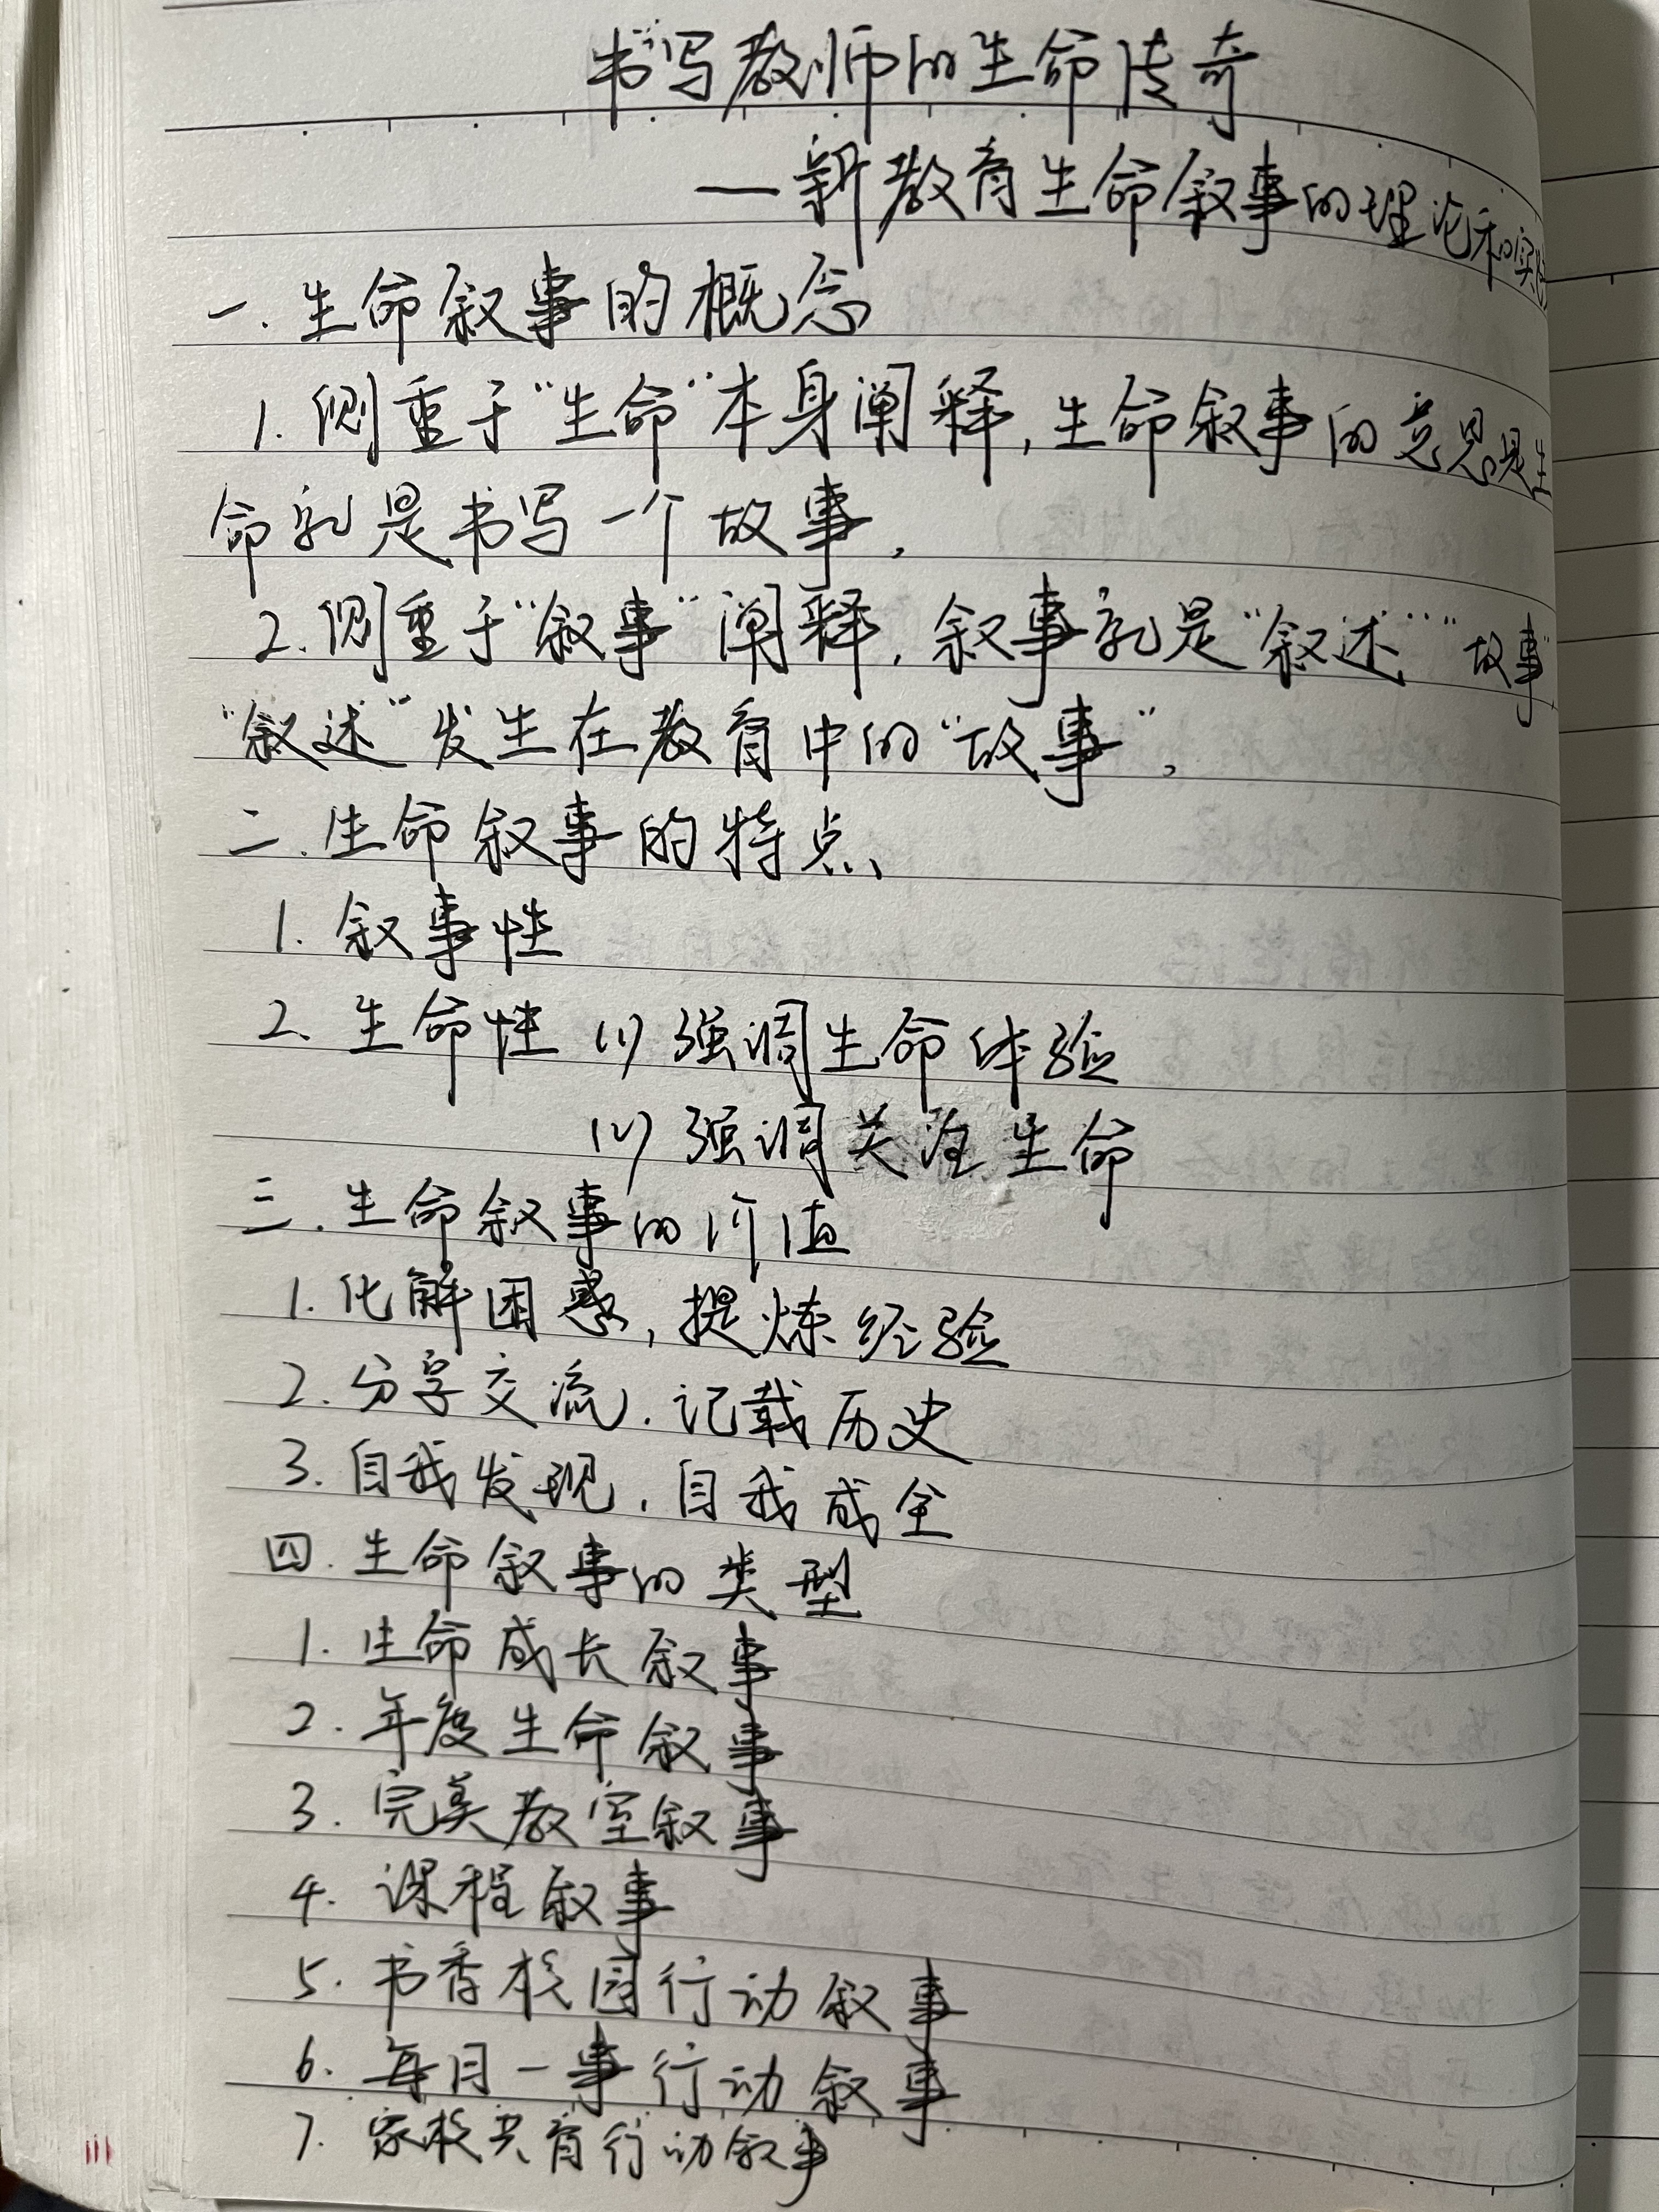 书写教师的生命传奇
—新教育生命叙事的理论和实践
一.生命叙事的概念
1.侧重于“生命”本身阐释,生命叙事的意思是生
命就是书写一个故事.
2.侧重于“叙事”阐释,叙事就是“叙述”“故事”
“叙述”发生在教育中的“故事”.
二.生命叙事的特点
1.叙事性
2.生命性 (1)强调生命体验
(2)强调关注生命
三.生命叙事的价值
1.化解困惑,提炼经验
2.分享交流,记载历史
3.自我发现,自我成全
四.生命叙事的类型
1.生命成长叙事
2.年度生命叙事
3.完美教室叙事
4.课程叙事
5.书香校园行动叙事
6.每月一事行动叙事
7.家校共育行动叙事